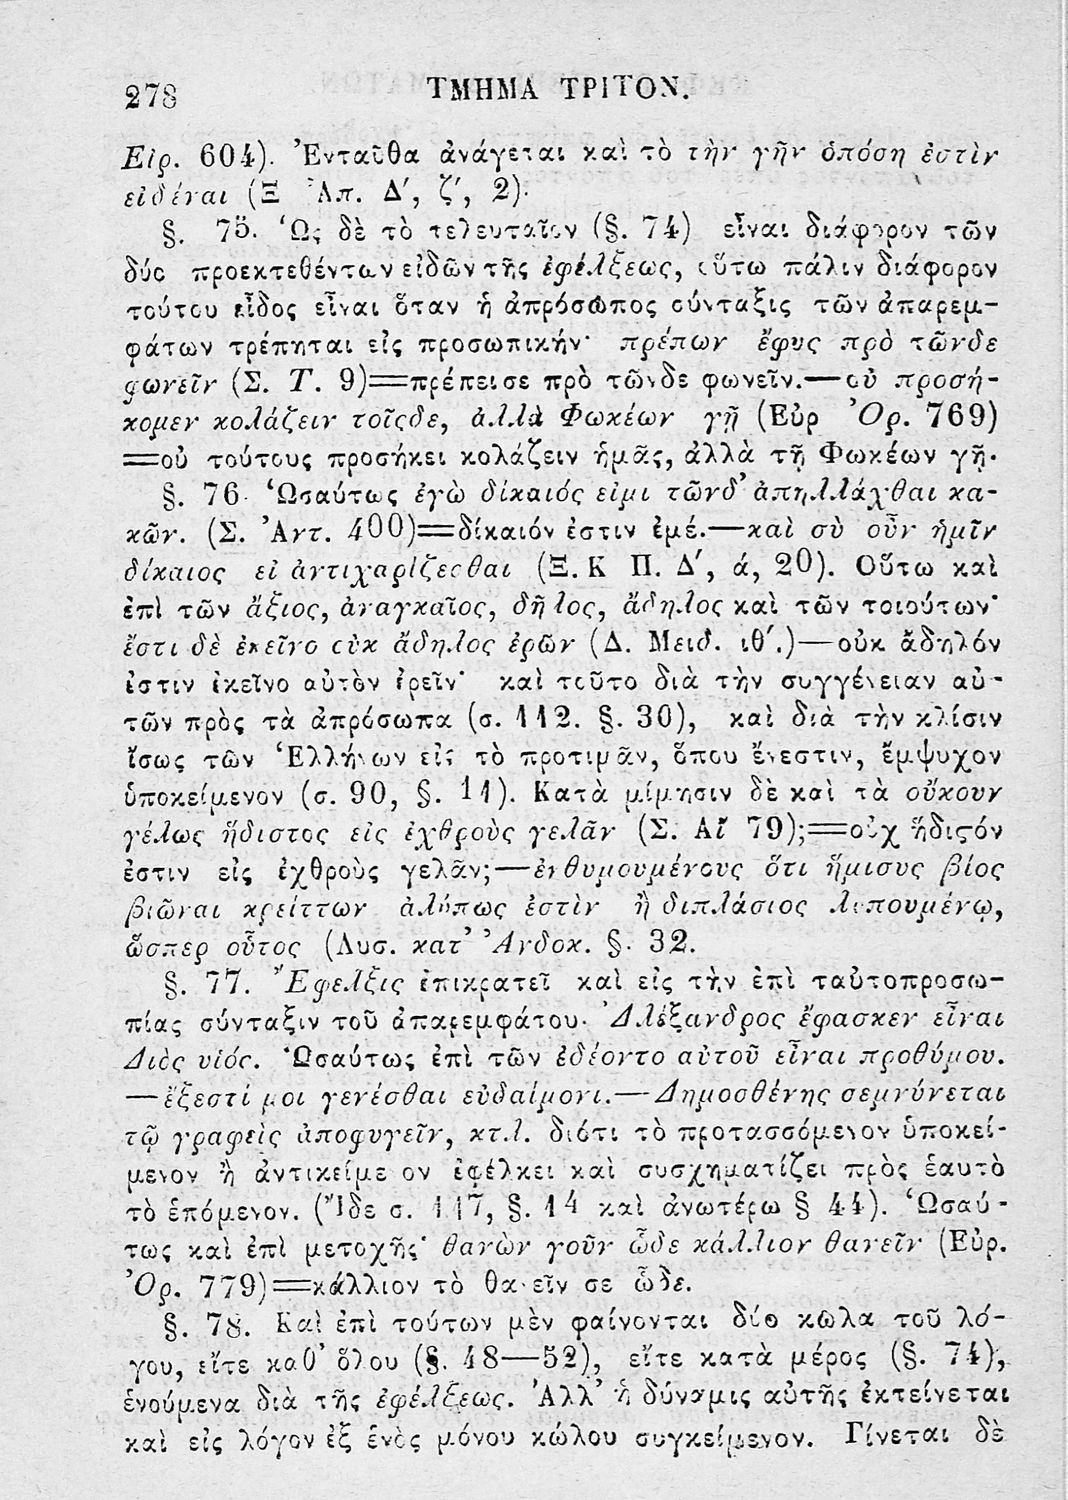 278 ΤΜΗΜΑ ΤΡΙΤΟΝ.
Εἰρ. 604). Ἐνταῦθα ἀνάγεται καὶ τὸ τὴν γῆν ὁπόση ἐστὶν
εἰδέναι (Ξ Ἀπ. Δ΄, ζ΄, 2).
§. 75. Ὡς δὲ τὸ τελευταῖον (§. 74) εἶναι διάφορον τῶν
δύο προεκτεθέντων εἰδῶν τῆς ἐφέλξεως, οὕτω πάλιν διάφορον
τούτου εἶδος εἶναι ὅταν ἡ ἀπρόσωπος σύνταξις τῶν ἀπαρεμ-
φάτων τρέπηται εἰς προσωπικήν· πρέπων ἔφυς πρὸ τῶνδε
φωνεῖν (Σ. Τ. 9)=πρέπει σε πρὸ τῶνδε φωνεῖν.—οὐ προσή-
κομεν κολάζειν τοῖςδε, ἀλλὰ Φωκέων γῇ (Εὐρ Ὀρ. 769)
=οὐ τούτους προσήκει κολάζειν ἡμᾶς, ἀλλὰ τῇ Φωκέων γῇ.
§. 76. Ὡσαύτως ἐγὼ δίκαιός εἰμι τῶνδ' ἀπηλλάχθαι κα-
κῶν. (Σ. Ἀντ. 400)=δίκαιόν ἐστιν ἐμέ.—καὶ σὺ οὖν ἡμῖν
δίκαιος εἶ ἀντιχαρίζεσθαι (Ξ. Κ Π. Δ΄, ά, 20). Οὕτω καὶ
ἐπὶ τῶν ἄξιος, ἀναγκαῖος, δῆλος, ἄδηλος καὶ τῶν τοιούτων·
ἔστι δὲ ἐκεῖνο οὐκ ἄδηλος ἐρῶν (Δ. Μειδ. ιθ΄.)—οὐκ ἄδηλόν
ἐστιν ἐκεῖνο αὐτὸν ἐρεῖν· καὶ τοῦτο διὰ τὴν συγγένειαν αὐ-
τῶν πρὸς τὰ ἀπρόσωπα (σ. 112. §. 30), καὶ διὰ τὴν κλίσιν
ἴσως τῶν Ἑλλήνων εἰς τὸ προτιμᾶν, ὅπου ἔνεστιν, ἔμψυχον
ὑποκείμενον (σ. 90, §. 11). Κατὰ μίμησιν δὲ καὶ τὰ οὔκουν
γέλως ἥδιστος εἰς ἐχθροὺς γελᾶν (Σ. Αἴ 79);=οὐχ ἥδιςόν
ἐστιν εἰς ἐχθροὺς γελᾶν;—ἐνθυμουμένους ὅτι ἥμισυς βίος
βιῶναι κρείττων ἀλύπως ἐστὶν ἢ διπλάσιος λυπουμένῳ,
ὥσπερ οὗτος (Λυσ. κατ' Ἀνδοκ. §. 32.
§. 77. Ἔφελξις ἐπικρατεῖ καὶ εἰς τὴν ἐπὶ ταὐτοπροσω-
πίας σύνταξιν τοῦ ἀπαρεμφάτου. Ἀλέξανδρος ἔφασκεν εἶναι
Διὸς υἱός. Ὡσαύτως ἐπὶ τῶν ἐδέοντο αὐτοῦ εἶναι προθύμου.
—ἔξεστί μοι γενέσθαι εὐδαίμονι.—Δημοσθένης σεμνύνεται
τῷ γραφεὶς ἀποφυγεῖν, κτ.λ. διότι τὸ προτασσόμενον ὑποκεί-
μενον ἢ ἀντικείμε ον ἐφέλκει καὶ συσχηματίζει πρὸς ἑαυτὸ
τὸ ἑπόμενον. (Ἴδε σ. 117, §. 14 καὶ ἀνωτέρω § 44). Ὡσαύ-
τως καὶ ἐπὶ μετοχῆς· θανὼν γοῦν ὧδε κάλλιον θανεῖν (Εὐρ.
Ὀρ. 779)=κάλλιον τὸ θανεῖν σε ὧδε.
§. 78. Καὶ ἐπὶ τούτων μὲν φαίνονται δύο κῶλα τοῦ λό-
γου, εἴτε καθ' ὅλου (§. 48—52), εἴτε κατὰ μέρος (§. 74),
ἑνούμενα διὰ τῆς ἐφέλξεως. Ἀλλ' ἡ δύναμις αὐτῆς ἐκτείνεται
καὶ εἰς λόγον ἐξ ἑνὸς μόνου κώλου συγκείμενον. Γίνεται δὲ